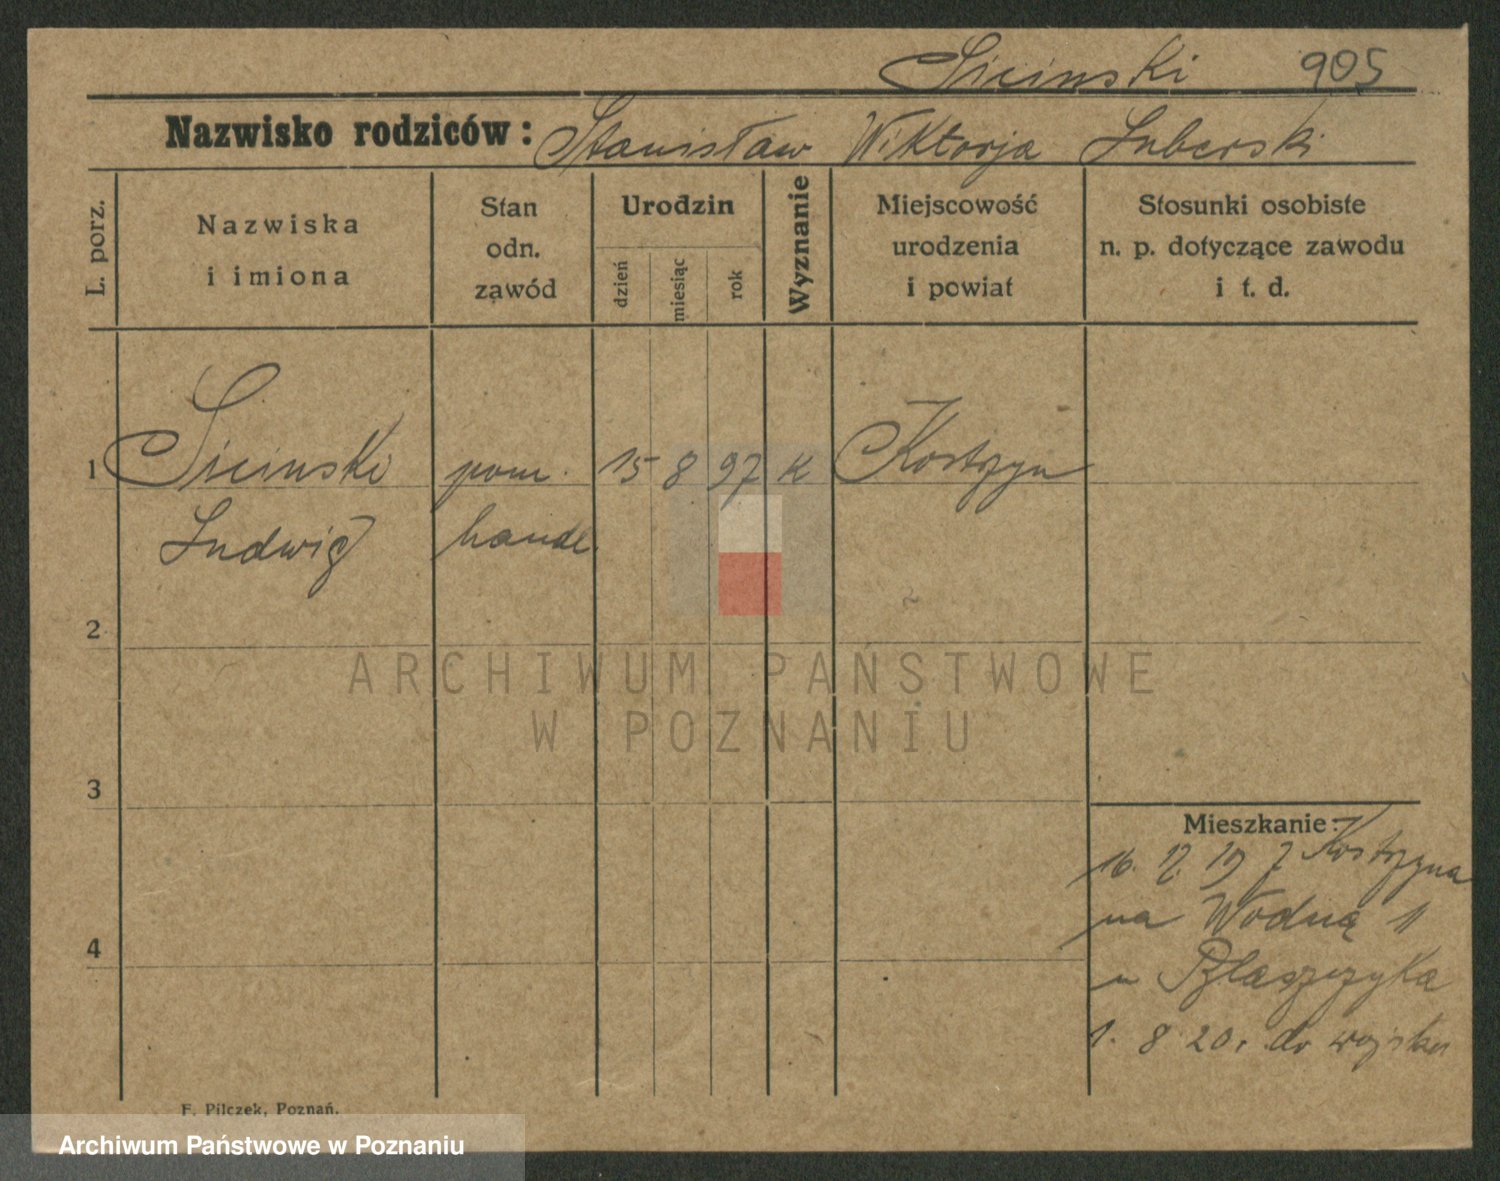 Siciński 905
Nazwisko rodziców: Stanisław Wiktorja Luberski
L. porz.
Nazwiska
i imiona
Stan
odn.
zawód
Urodzin
dzień
miesiąc
rok
Wyznanie
Miejscowość
urodzenia
i powiat
Stosunki osobiste
n. p. dotyczące zawodu
i t. d.
1 Siciński pom. 15 8 97 k Kostrzyn
Ludwig handl.
2
ARCHIWUM PAŃSTWOWE
W POZNANIU
3
Mieszkanie:
16. 12. 19 z Kostrzyna
4
na Wodną 11
u Błaszczyka
1. 8 20. do wojska
F. Pilczek, Poznań.
Archiwum Państwowe w Poznaniu